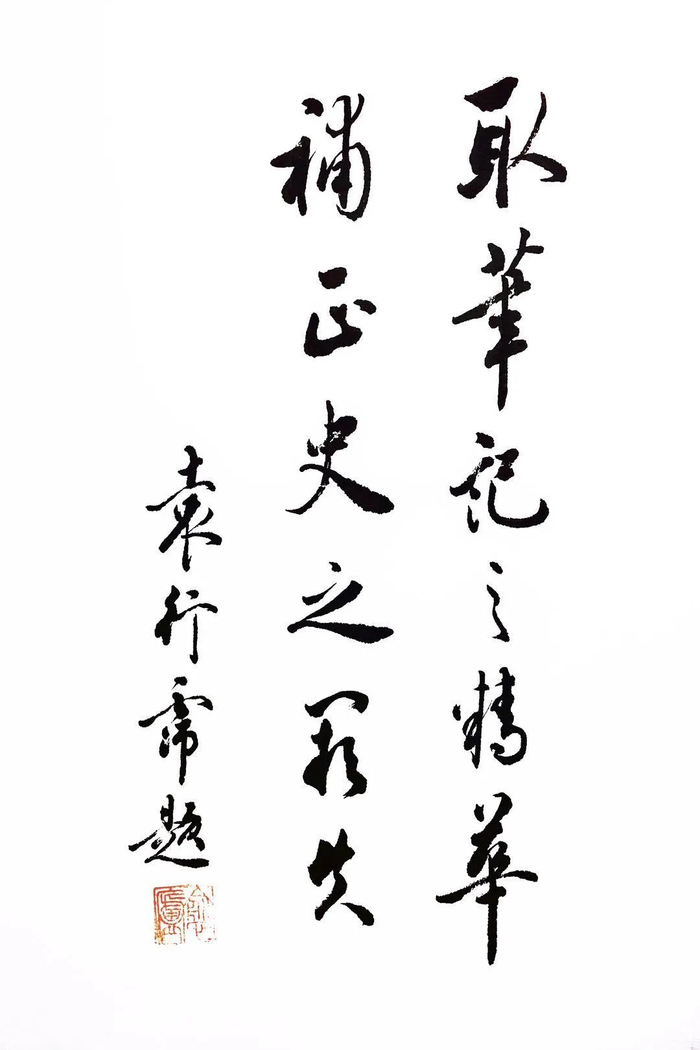 取筆記之精華
補正史之闕失
袁行霈題
愈廬